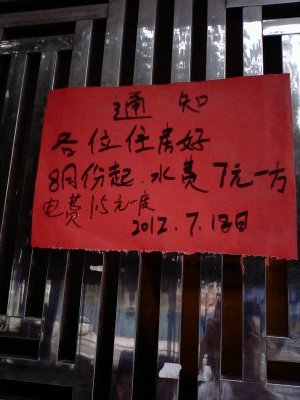 通知
各位住房好
8月份起.水费7元一方
电费1.5元一度
2012.7.18日